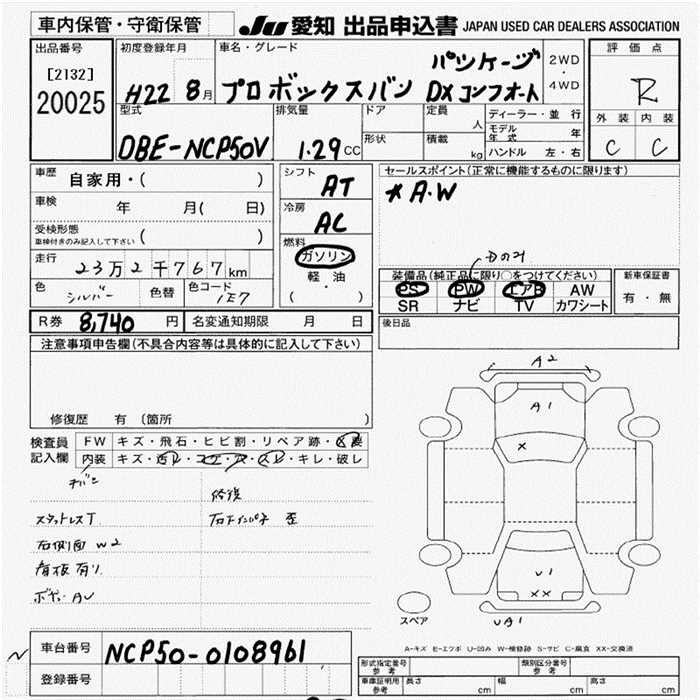 車内保管・守衛保管
JU 愛知 出品申込書 JAPAN USED CAR DEALERS ASSOCIATION
出品番号
[2132]
20025
初度登録年月
H22 8月
車名・グレード
パッケージ
プロボックスバン DXコンフォート
2WD
・
4WD
評価点
R
外装 内装
C C
型式
DBE-NCP50V
排気量
1.29cc
ドア
形状
定員
人
積載
kg
ディーラー・並行
モデル年式 年
ハンドル 左・右
車歴 自家用・( )
車検 年 月( 日)
受検形態
車検付きのみ記入して下さい ( )
走行 23万2千767km
色 シルバー 色替 色コード 1E7
シフト
AT
冷房
AC
燃料
ガソリン
軽・油
( )
セールスポイント(正常に機能するものに限ります)
*A・W
Dのみ
装備品(純正品に限り○をつけてください)
PS PW エアB AW
SR ナビ TV カワシート
新車保証書
有・無
R券 8,740円 名変通知期限 月 日
後日品
注意事項申告欄(不具合内容等は具体的に記入して下さい)
修復歴 有 (箇所 )
検査員
記入欄
FW キズ・飛石・ヒビ割・リペア跡・X要
内装 キズ・汚レ・コゲ・穴・スレ・キレ・破レ
スタットレスT
右側面 W2
看板有り
修復
歪
A2
A1
X
U1
XX
UA1
スペア
A-キズ E-エクボ U-凹み W-補修跡 S-サビ C-腐食 XX-交換済
車台番号 NCP50-0108961
登録番号
形式指定番号
参考
類別区分番号
参考
車庫証明用
参考
長さ cm 幅 cm 高さ cm